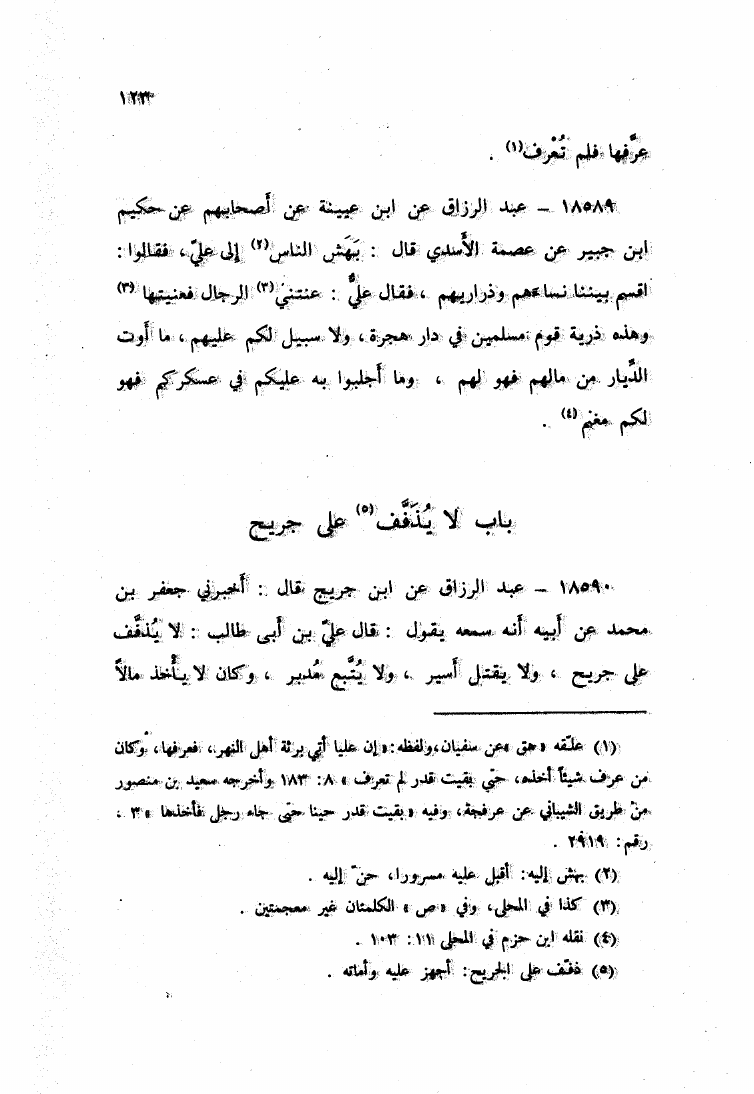 ١٢٣
عرَّفها فلم تُعْرف(١) .
١٨٥٨٩ – عبد الرزاق عن ابن عيينة عن أصحابهم عن حكيم
ابن جبير عن عصمة الأسدي قال : بَهَش الناس(٢) إلى عليّ، فقالوا :
اقسم بيننا نساءهم وذراريهم ، فقال عليٌّ : عنتني(٣) الرجال فعنيتها (٣)
وهذه ذرية قوم مسلمين في دار هجرة، ولا سبيل لكم عليهم، ما أوت
الدِّيار من مالهم فهو لهم ، وما أجلبوا به عليكم في عسكركم فهو
لكم مغنم(٤) .
باب لا يُذَفَّف(٥) على جريح
١٨٥٩٠ – عبد الرزاق عن ابن جريج قال : أخبرني جعفر بن
محمد عن أبيه أنه سمعه يقول : قال عليّ بن أبي طالب : لا يُذَفَّف
على جريح ، ولا يقتل أسير ، ولا يُتَّبع مُدبر ، وكان لا يأْخذ مالاً
(١) علّقه « هق » عن سفيان، ولفظه: « إن عليا أتي برثة أهل النهر، فعرفها، وكان
من عرف شيئاً أخذه، حتى بقيت قدر لم تعرف » ٨: ١٨٣ وأخرجه سعيد بن منصور
من طريق الشيباني عن عرفجة، وفيه « بقيت قدر حينا حتى جاء رجل فأخذها » ٣ ،
رقم: ٢٩١٩ .
(٢) بهش إليه: أقبل عليه مسرورا، حنّ إليه .
(٣) كذا في المحلى، وفي « ص » الكلمتان غير معجمتين .
(٤) نقله ابن حزم في المحلى ١١: ١٠٣ .
(٥) ذفّف على الجريح: أجهز عليه وأماته .